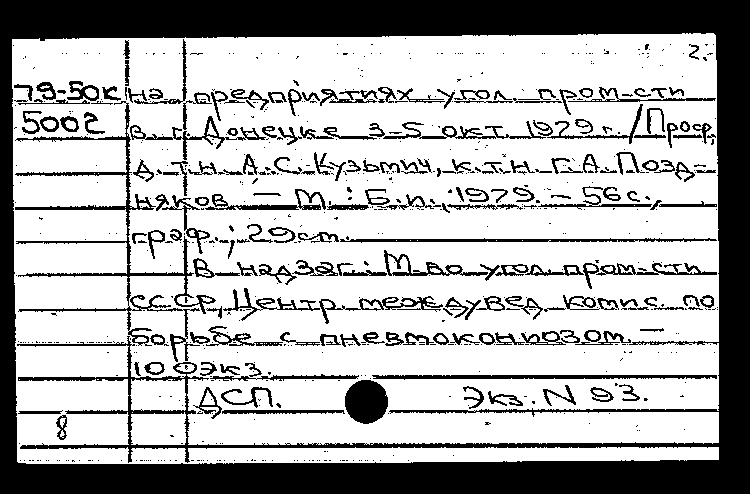 2.
79-50к на предприятиях угол. пром-сти
5002 в г. Донецке 3-5 окт. 1979 г. / Проф.,
д.т.н. А.С. Кузьмич, к.т.н. Г.А. Позд-
няков — М. : Б.и., 1979. – 56 с.,
граф.; 29 см.
В надзаг.: М-во угол. пром-сти
СССР, Центр. междувед. комис. по
борьбе с пневмокониозом. —
100 экз.
ДСП. Экз. N 93.
8